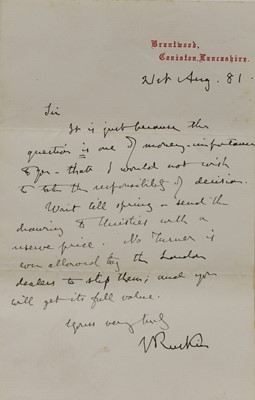 Brantwood,
Coniston, Lancashire.
21st Aug. 81.
Sir
It is just because the
question is one of money-importance
to you - that I would not wish
to take the responsibility of decision.
Wait till spring - send the
drawing to Christies with a
reserve price. No Turner is
ever allowed by the London
dealers to slip them; and you
will get its full value.
Yours very truly
J Ruskin